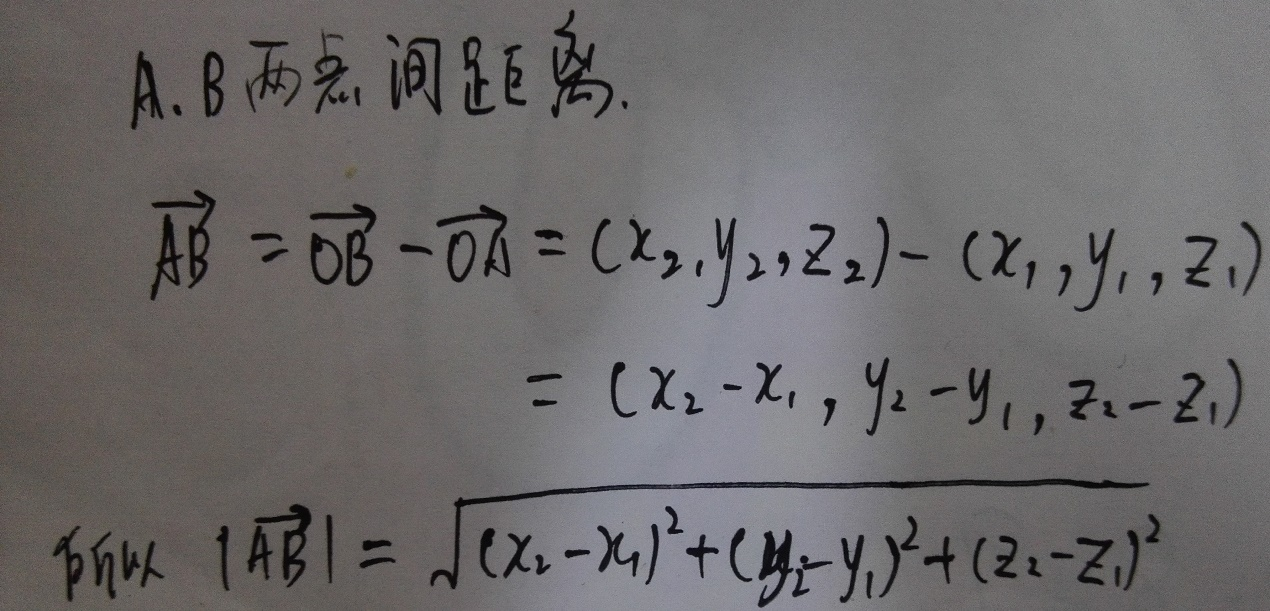 A.B两点间距离.
$\overrightarrow{AB} = \overrightarrow{OB} - \overrightarrow{OA} = (x_2, y_2, z_2) - (x_1, y_1, z_1)$
$= (x_2 - x_1, y_2 - y_1, z_2 - z_1)$
所以 $|\overrightarrow{AB}| = \sqrt{(x_2 - x_1)^2 + (y_2 - y_1)^2 + (z_2 - z_1)^2}$